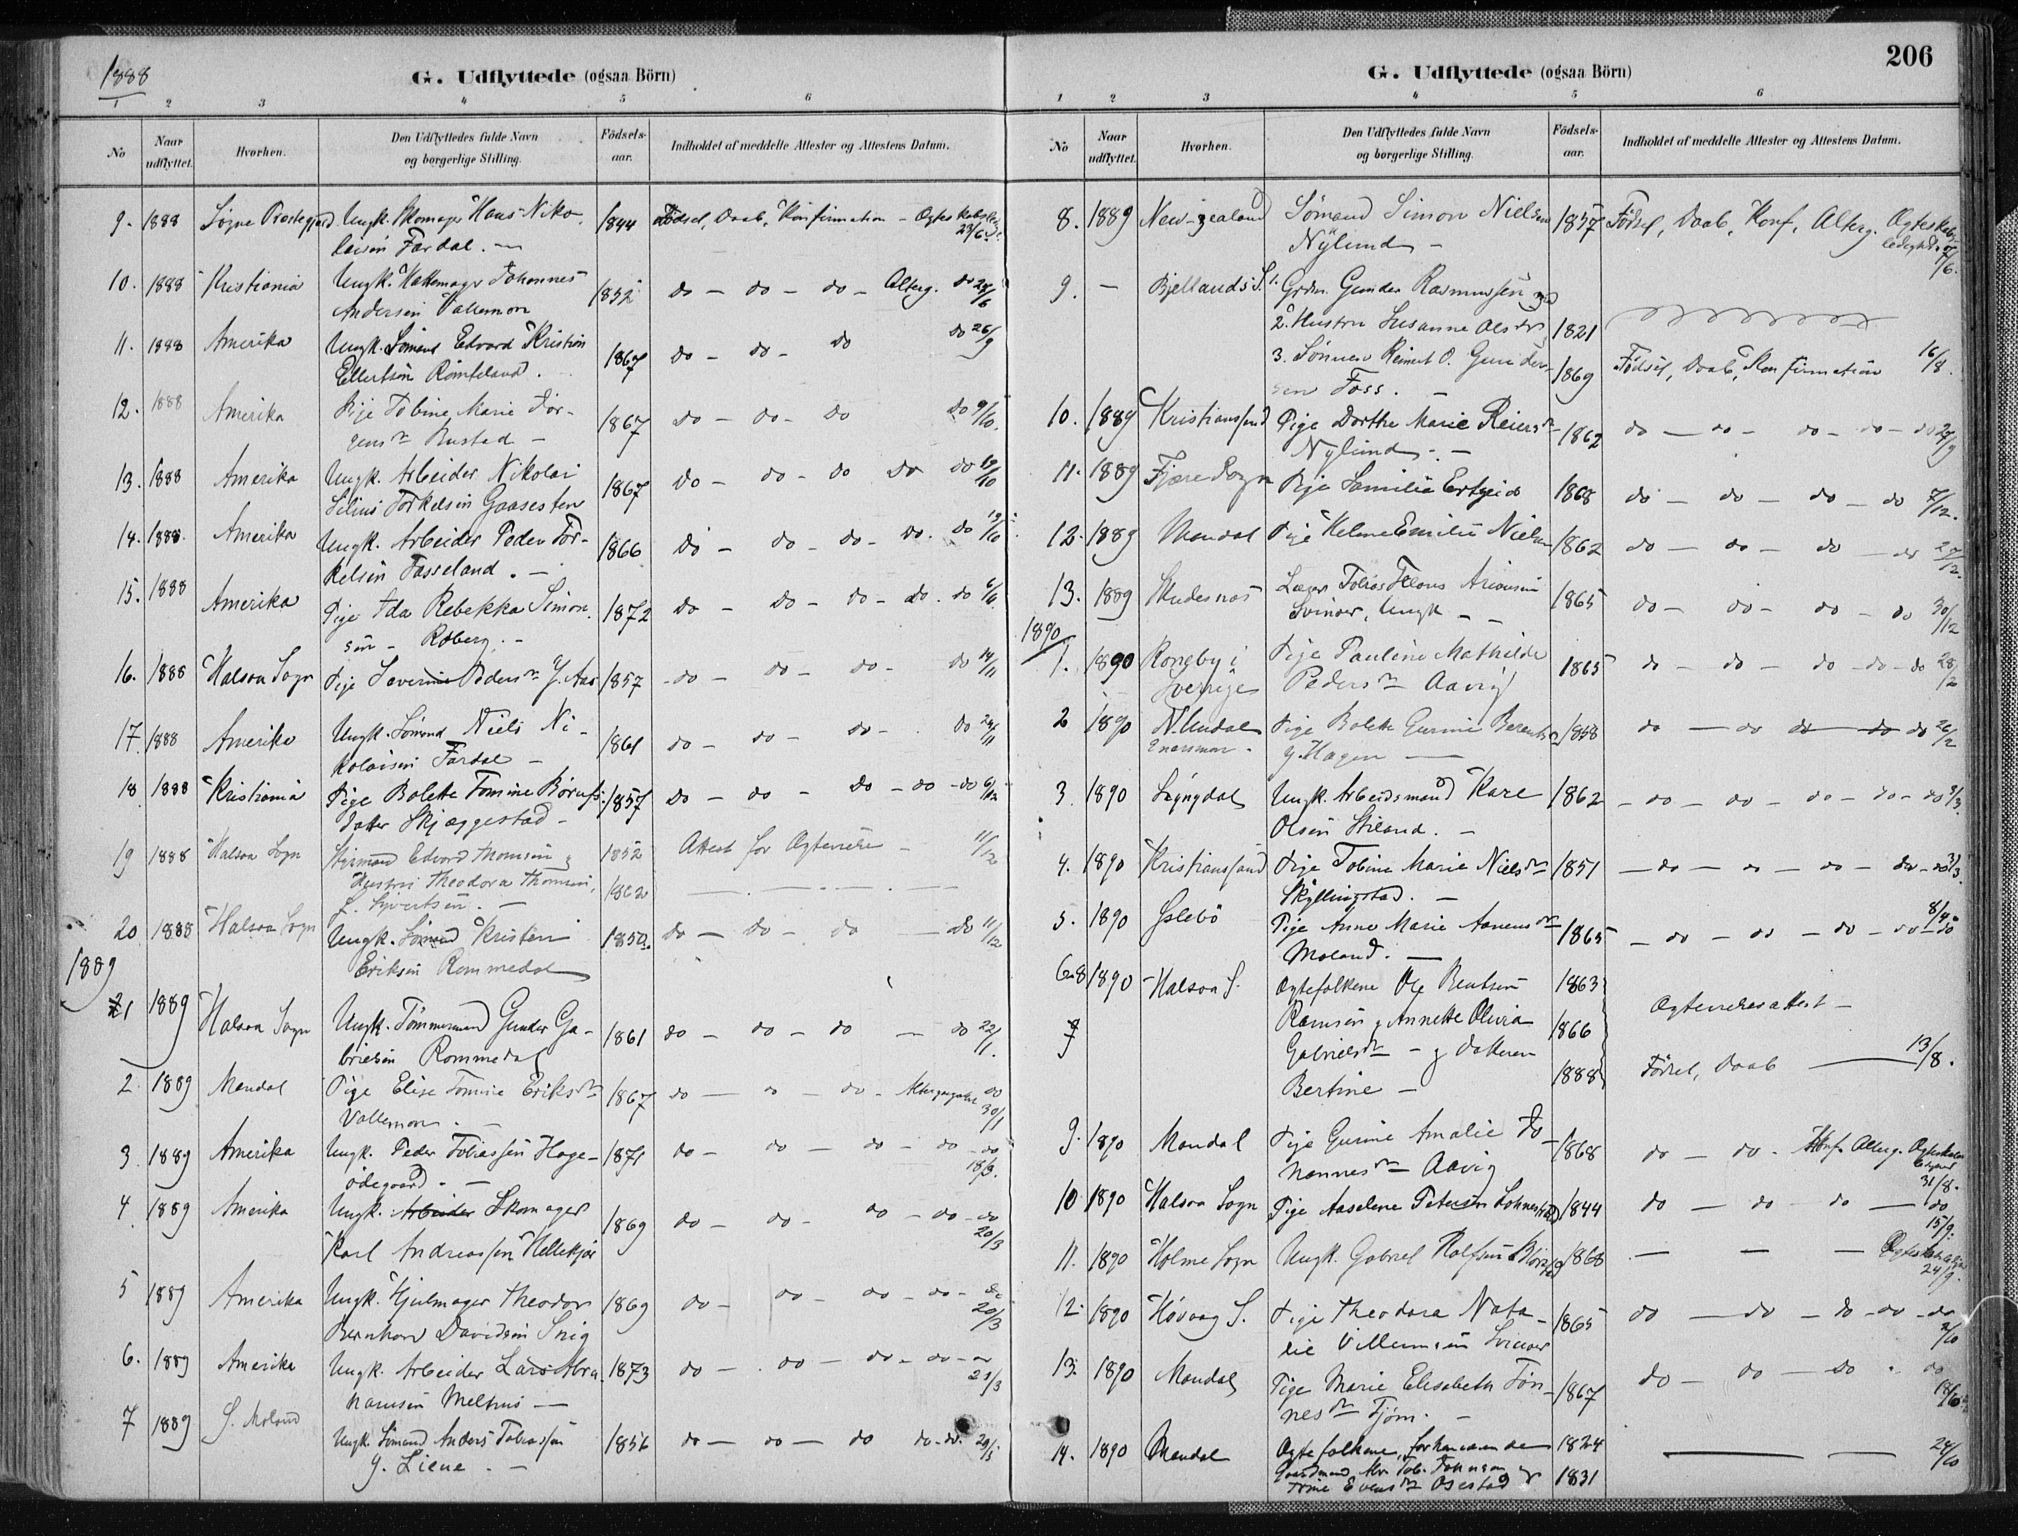 1888
G. Udflyttede (ogsaa Börn)
1 2 3 4 5 6
No
Naar udflyttet.
Hvorhen.
Den Udflyttedes fulde Navn og borgerlige Stilling.
Födsels-aar.
Indholdet af meddelte Attester og Attestens Datum.
9. 1888 Søgne Prestegjeld Ungk. Skomager Hans Niko- 1844 Fødsel, Daab, Konfirmation - 23/6
laisen Fardal. -
10. 1888 Kristiania Ungk. Johannes 1852 do - do - do - Alterg. do
Andersen Vallemon
11. 1888 Amerika Ungk. Sømand Edvard Kristian 1867 do - do - do do 26/9
Ellertsen Rømteland.
12. 1888 Amerika Pige Tobine Marie Jør- 1867 do - do - do do 9/10
gensdr Bustad -
13. 1888 Amerika Ungk. Arbeider Nikolai 1867 do - do - do do do 19/10
Torkelsen Gaasesten
14. 1888. Amerika Ungk. Arbeider Peder Tor- 1866 do - do - do - do. do 19/10
kelsen Fasseland. -
15. 1888 Amerika Pige Ida Rebekka Simon- 1872 do - do - do - do. do
sen - Roberg. -
16. 1888 Halsaa Sogn Pige Severine Pedersdr Y. Aas 1857 - do - do - do - do 14/11
17. 1888 Amerika Ungk. Sømand Niels Ni- 1861 do - do - do - do
kolaisen Fardal -
18 1888 Kristiania Pige Bolette Tomine Børufs- 1857 do - do - do - do - do 6/12
datter Skjæggestad -
19 1888 Halsaa Sogn Styrmand Edvard Thomsen & 1852 Attest for Ægtevielse - 11/12
Hustru Theodora Thomsen, 1862
f. Syvertsen. -
20 1888 Halsaa Sogn Ungk. Sømand Kristen 1850. do - do - do - do 11/12
Eriksen Rommedal
1889
1 1889 Halsaa Sogn Ungk. Tømmermand Gunder Ga- 1861 do - do - do - do 22/1.
brielsen Rommedal
2 1889 Mandal Pige Elise Tomine Eriksdr 1867 do - do - do. do 30/1
Vallemon. -
3 1889 Amerika Ungk. Peder Tobiassen Hage- 1871 do - do - do - do - do 18/3.
ødegaard. -
4 1889 Amerika Ungk. Arbeider Skomager 1869 do - do - do - do - do 20/3
Karl Andreassen Hellekjær
5 1889 Amerika Ungk. Hjulmager Theodor 1869 do - do - do - do - do 20/3
Bernhard Davidsen Snig
6. 1889 Amerika Ungk. Arbeider Lars Abra- 1873 do - do - do - do - do 21/3
hamsen Melhus -
7 1889 S. Moland Ungk. Sømand Anders Tobiassen 1856 do - do - do do - do
Y. Liene. -
G. Udflyttede (ogsaa Börn)
206
1 2 3 4 5 6
No
Naar udflyttet.
Hvorhen.
Den Udflyttedes fulde Navn og borgerlige Stilling.
Födsels-aar.
Indholdet af meddelte Attester og Attestens Datum.
8. 1889 New-Zealand Sømand Simon Nielsen 1857 Fødsel, Daab, Konf, Alterg. Ægteskabs-
Nylund - ledighed.
9. - Bjellands S. 1. Grdm. Gunder Rasmussen og
2. Hustru Susanne Olsdr 1821
3. Sønnen Reinert O. Gunder- 1869 Fødsel, Daab, Konfirmation 16/8.
sen Foss. -
10. 1889 Kristianssand Pige Dorthe Marie Reiersdr 1862 do - do - do - do - do
Nylund. -
11. 1889 Fjære Sogn Pige 1868 do - do - do - do 7/12.
12. 1889 Mandal Pige Helene Emilie Nielsen 1862 do - do - do - do
13. 1889 Skudesnæs Tobias 1865 do - do - do - do 30/12
Svinør, Ungk - -
1890
1. 1890 i Pige Pauline Mathilde 1865 do - do - do - do - do 28/2
Sverrige Pedersdr Aavig
2 1890 N. Undal Pige Bolette Gurine Berentsen 1858 do - do do - do do 26/2
Y. Hagen -
3 1890 Lyngdal Ungk. Arbeidsmand Kare 1862 - do - do - do - do - do
Olsen Stiland. -
4. 1890 Kristianssand Pige Tobine Marie Nielsdr 1851 - do - do - do - do - do
Skyllingstad. -
5. 1890 Øslebø Pige Anne Marie Aanensdr 1865 - do - do - do - do - do 8/4
Moland. -
6-8 1890 Halsaa S. Ægtefolkene Ole Bentsen 1863
Ramsøen & Annette Olivia 1866 Ægtevielsesattest -
Gabrielsdr - & datteren
Bertine - 1888 Fødsel, Daab - 13/8.
9. 1890 Mandal Pige Gurine Amalie Jo- 1868 do - do. Konf. Alterg. 31/8.
hannesdr Aavig
10 1890 Halsaa Sogn Pige Aaselene Petersen 1844 do - do - do - do 15/9.
11. 1890 Holme Sogn Ungk. Gabriel Rolfsen 1868 - - - 24/9.
12. 1890 Høvaag S. Pige Theodora Nata- 1865 do - do - do - do - do
lie Villumsen Svinør
13. 1890 Mandal Pige Marie Elisabeth Tøn- 1867 do - do - do . do
nesdr Tjøm. -
14. 1890 Mandal Ægtefolkene, forhenværende 1824 - 24/10
Gaardmand Johnsen og 1831
Trine Evensdr Øgestad